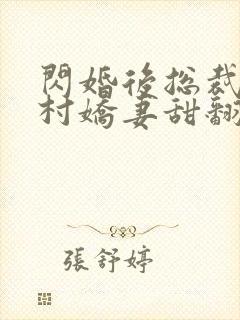 閃婚後總裁
村嬌妻甜翻
張舒婷